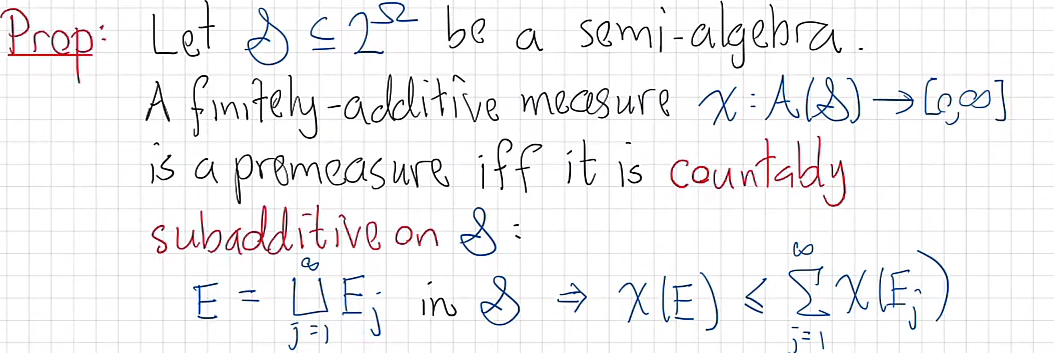 Prop: Let 𝒮 ⊆ 2^Ω be a semi-algebra.
A finitely-additive measure χ : A(𝒮) → [0,∞]
is a premeasure iff it is countably
subadditive on 𝒮 :
E = ⨆_{j=1}^{∞} E_j in 𝒮 ⇒ χ(E) ≤ ∑_{j=1}^{∞} χ(E_j)